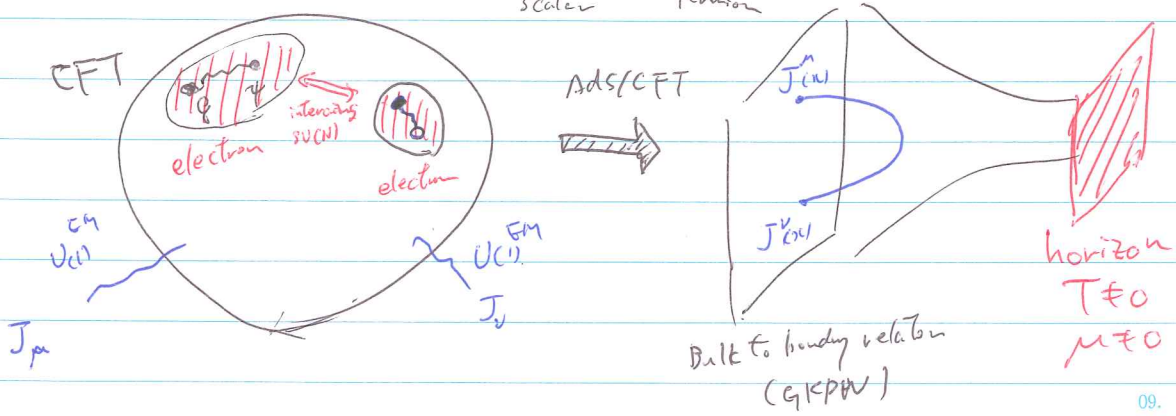 scalar fermion
CFT
φ ψ
interacting
SU(N)
electron
electron
EM
U(1)
J_μ
EM
U(1)
J_ν
AdS/CFT
J^μ(x)
J^ν(x)
Bulk to boundary relation
(GKPW)
horizon
T≠0
μ≠0
09.